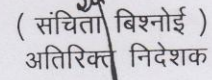 ( संचिता बिश्नोई )
अतिरिक्त निदेशक